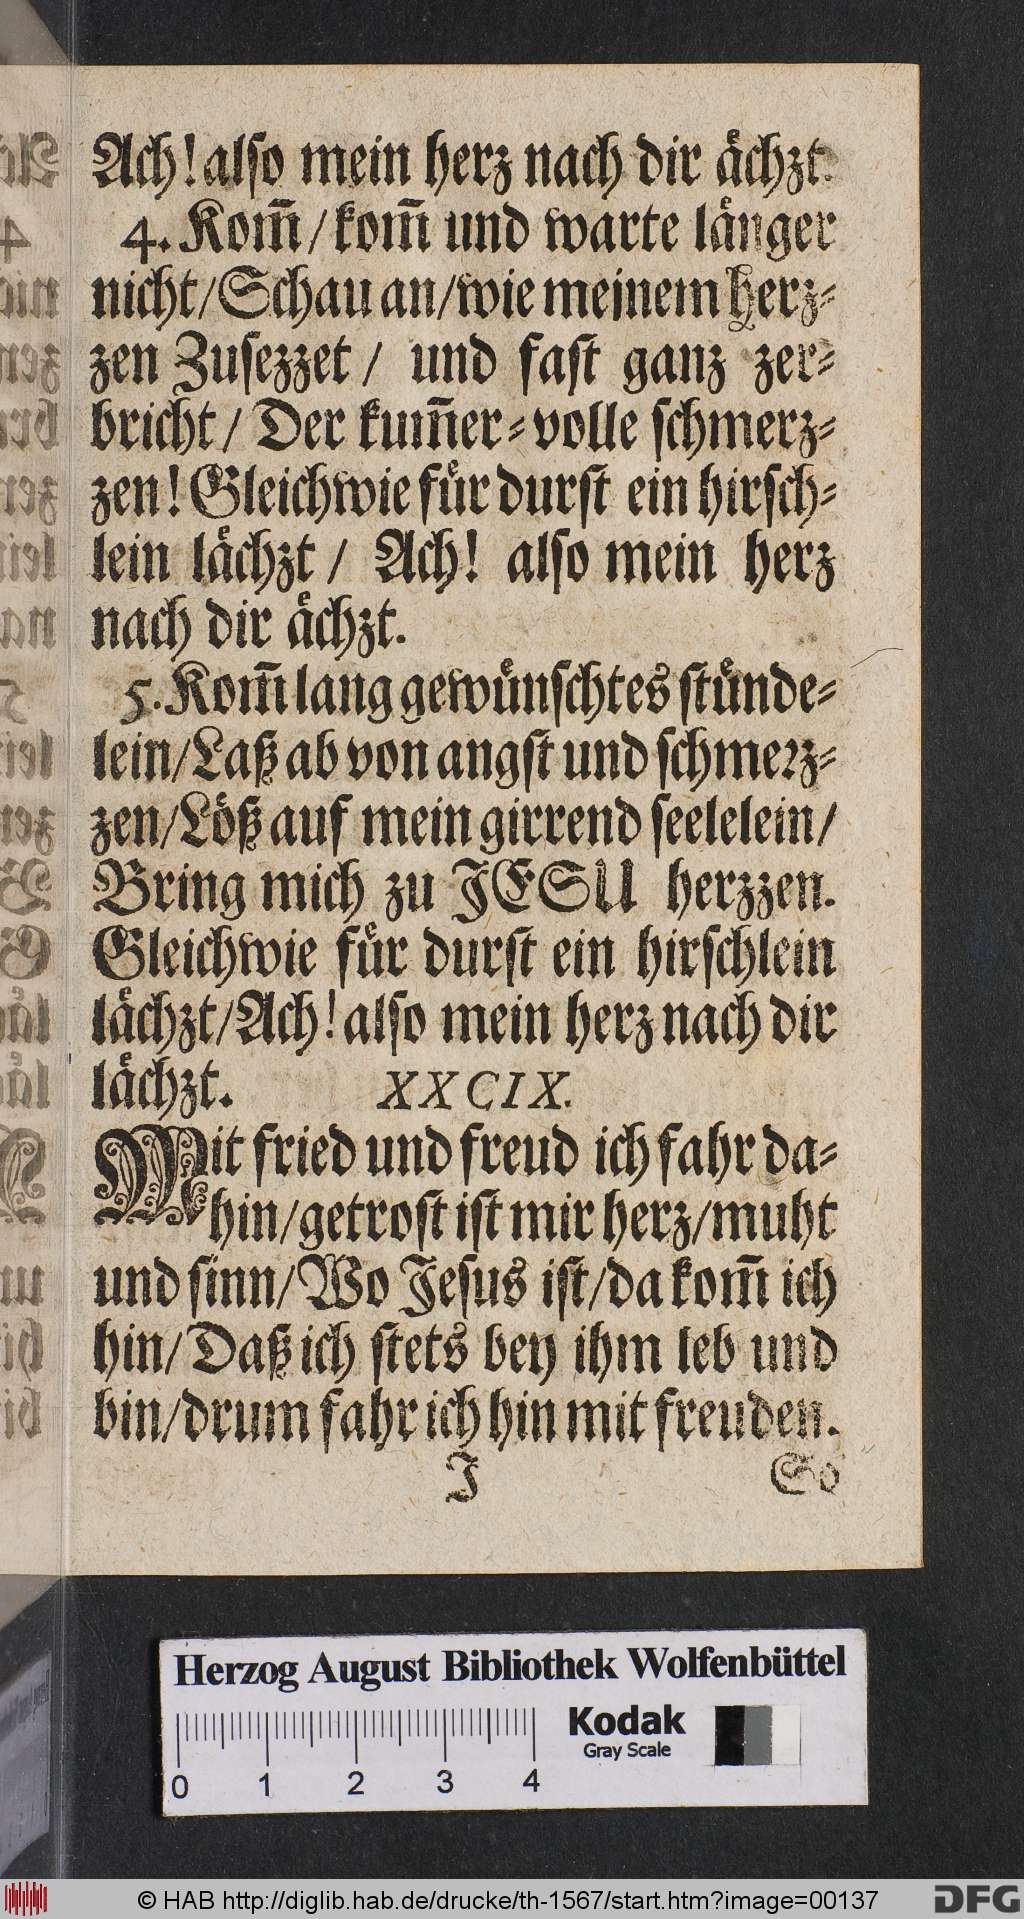 Ach! also mein herz nach dir aͤchzt.
4. Kom̃/kom̃ und warte laͤnger
nicht/Schau an/wie meinem herz-
zen Zusezzet/ und fast ganz zer-
bricht/ Der kum̃er-volle schmerz-
zen! Gleichwie fuͤr durst ein hirsch-
lein laͤchzt/ Ach! also mein herz
nach dir aͤchzt.
5. Kom̃ lang gewuͤnschtes stuͤnde-
lein/Laß ab von angst und schmerz-
zen/Loͤß auf mein girrend seelelein/
Bring mich zu JESU herzzen.
Gleichwie fuͤr durst ein hirschlein
laͤchzt/Ach! also mein herz nach dir
laͤchzt.
XXCIX.
Mit fried und freud ich fahr da-
hin/getrost ist mir herz/muht
und sinn/Wo Jesus ist/da kom̃ ich
hin/Daß ich stets bey ihm leb und
bin/drum fahr ich hin mit freuden.
J So
Herzog August Bibliothek Wolfenbüttel
Kodak
Gray Scale
0 1 2 3 4
© HAB http://diglib.hab.de/drucke/th-1567/start.htm?image=00137
DFG